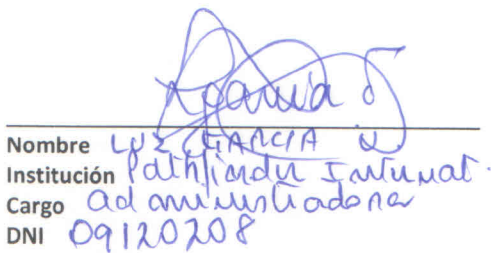 Nombre LUZ GARCIA
Institución Pathfinder Internat.
Cargo administradora
DNI 09120208